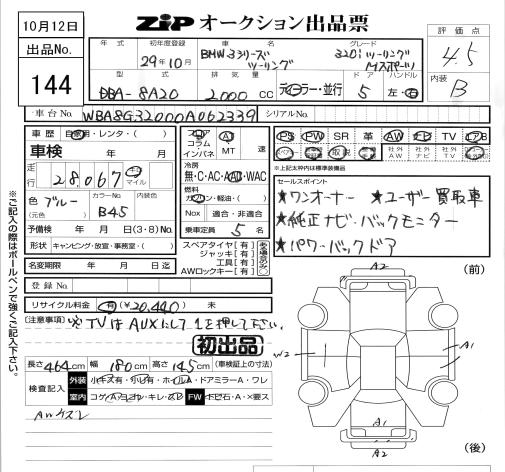 10月12日
出品No.
144
ZiP オークション出品票
年式 初年度登録 車名 グレード
29年10月 BMW 3シリーズ ツーリング 320i ツーリング Mスポーツ
型式 排気量 ドア ハンドル
DBA-8A20 2000 CC ディーラー・並行 5 左・右
評価点
4.5
内装
B
車台No. WBA8G32000A062339 シリアルNo.
車歴 自家用・レンタ・( )
車検 年 月
走行 28,067 キロ マイル
色 ブルー カラーNo. B45 内装色
(元色)
予備検 年 月 日(3・8)No.
形状 キャンピング・放宣・事務室・( )
名変期限 年 月 日迄
登録No.
フロア コラム インパネ AT MT 速
冷房
無・C・AC・AAC・WAC
燃料
ガソリン・軽油・( )
Nox 適合・非適合
乗車定員 5 名
スペアタイヤ【有】
ジャッキ【有】
工具【有】
AWロックキー【有】
ある場合のみ○
PS PW SR 革 AW ナビ TV エアB
社外AW 社外ナビ 社外TV
※上記太枠内は標準装備品
セールスポイント
★ワンオーナー ★ユーザー買取車
★純正ナビ・バックモニター
★パワーバックドア
リサイクル料金 有(¥20,440) 未
【注意事項】 ※TVはAUXにして1を押して下さい。
初出品
長さ464cm 幅180cm 高さ145cm (車検証上の寸法)
検査記入 外装 小キズ有・小凹有・ホイルA・ドアミラーA・ワレ
室内 コゲA・ヨゴレ・キレ・スレ FW トビ石・A・×要ス
AWカスレ
※ご記入の際はボールペンで強くご記入下さい。
(前)
A2
W2
A1
A1
A2
(後)